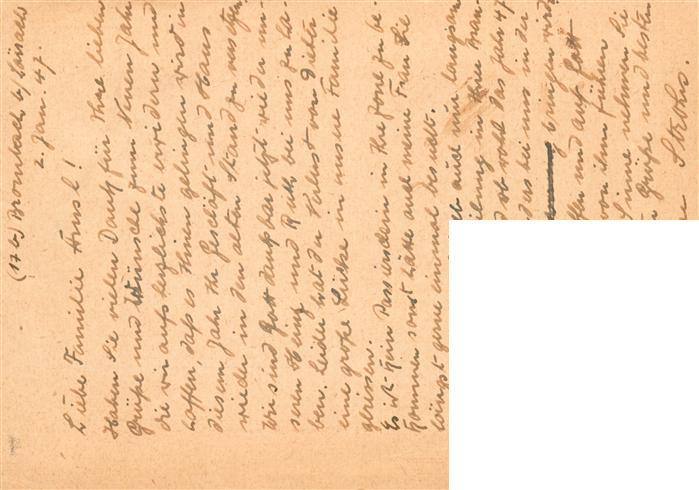 (17b) Brombach b/ Lörrach
2. Jan. 47.
Liebe Familie Ernst!
Haben Sie vielen Dank für Ihre lieben
Grüße und Wünsche zum Neuen Jahr
die wir aufs herzlichste erwidern und
hoffen, daß es Ihnen gelingen wird in
diesem Jahr Ihr Geschäft und Haus
wieder in den alten Stand zu versetzen.
Wir sind Gott dankbar jetzt wieder un-
seren Heinz und Ruth bei uns zu ha-
ben. Leider hat der Verlust von Dieter
eine große Lücke in unsere Familie
gerissen.
Es ist kein Passierschein in Ihre Zone zu be-
kommen sonst hätte auch meine Frau Sie
längst gerne einmal besucht.
auch nur langsam
in Ihre
ob wohl das Jahr 47
das bei uns in der
bringen wird
und auf Gott
von dem früher
nehmen Sie
Grüße und besten
Strohm.